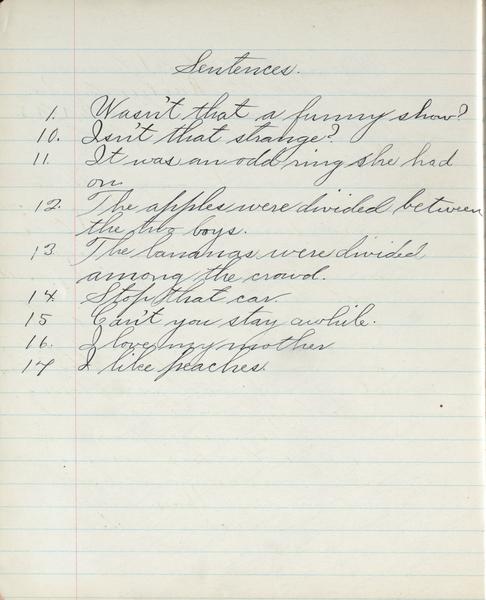 Sentences.
1. Wasn't that a funny show?
10. Isn't that strange?
11. It was an odd ring she had
on.
12. The apples were divided between
the two boys.
13. The bananas were divided
among the crowd.
14. Stop that car.
15 Can't you stay awhile.
16. I love my mother
17 I like peaches.